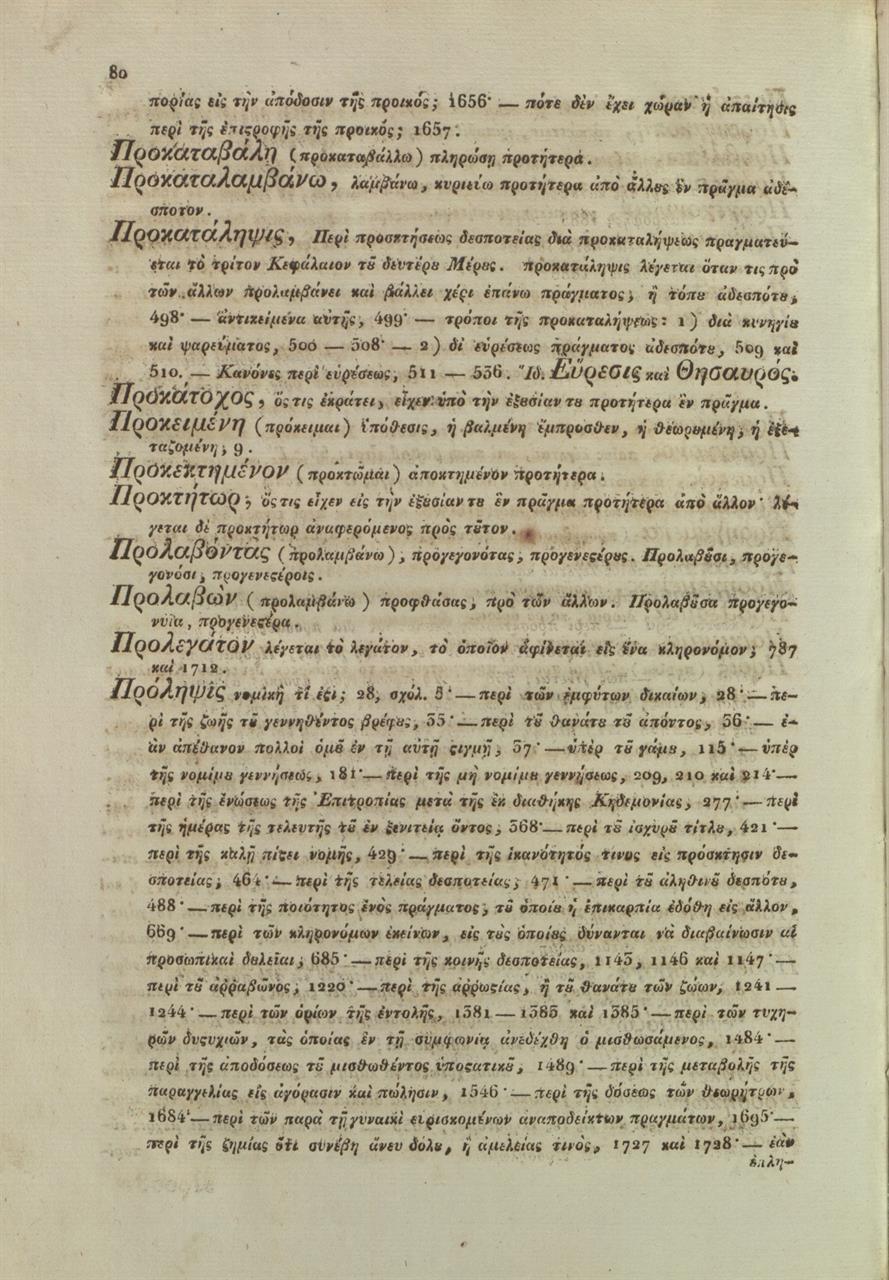 80
πορίας εἰς τὴν ἀπόδοσιν τῆς προικός; 1656· — πότε δὲν ἔχει χώραν ἡ ἀπαίτησις
περὶ τῆς ἐπιςροφῆς τῆς προικός; 1657.
Προκαταβάλῃ (προκαταβάλλω) πληρώσῃ προτήτερα.
Προκαταλαμβάνω, λαμβάνω, κυριεύω προτήτερα ἀπὸ ἄλλȣς ἓν πρᾶγμα ἀδέ-
σποτον.
Προκατάληψις, Περὶ προσκτήσεως δεσποτείας διὰ προκαταλήψεως πραγματεύ-
εται τὸ τρίτον Κεφάλαιον τȣ͂ δευτέρȣ Μέρȣς. προκατάληψις λέγεται ὅταν τις πρὸ
τῶν ἄλλων προλαμβάνει καὶ βάλλει χέρι ἐπάνω πράγματος, ἢ τόπȣ ἀδεσπότȣ,
498· — ἀντικείμενα αὐτῆς, 499· — τρόποι τῆς προκαταλήψεως: 1) διὰ κυνηγίȣ
καὶ ψαρεύματος, 500 — 508· — 2) δι εὑρέσεως πράγματος ἀδεσπότȣ, 509 καὶ
510. — Κανόνες περὶ εὑρέσεως, 511 — 536. Ἰδ. Εὕρεσις καὶ Θησαυρός.
Προκάτοχος, ὅςτις ἐκράτει, εἶχεν ὑπὸ τὴν ἐξȣσίαν τȣ προτήτερα ἓν πρᾶγμα.
Προκειμένη (πρόκειμαι) ὑπόθεσις, ἡ βαλμένη ἔμπροσθεν, ἡ θεωρȣμένη, ἡ ἐξε-
ταζομένη, 9.
Προκεκτημένον (προκτῶμαι) ἀποκτημένον προτήτερα.
Προκτήτωρ, ὅςτις εἶχεν εἰς τὴν ἐξȣσίαν τȣ ἓν πρᾶγμα προτήτερα ἀπὸ ἄλλον· λέ-
γεται δὲ προκτήτωρ ἀναφερόμενος πρὸς τȣ͂τον.
Προλαβόντας (προλαμβάνω), προγεγονότας, προγενεςέρȣς. Προλαβȣ͂σι, προγε-
γονόσι, προγενεςέροις.
Προλαβὼν (προλαμβάνω) προφθάσας, πρὸ τῶν ἄλλων. Προλαβȣ͂σα προγεγο-
νυῖα, προγενεςέρα.
Προλεγάτον λέγεται τὸ λεγάτον, τὸ ὁποῖον ἀφίνεται εἰς ἕνα κληρονόμον, 787
καὶ 1712.
Πρόληψις νομικὴ τί ἐςι; 28, σχόλ. 8· — περὶ τῶν ἐμφύτων δικαίων, 28· — πε-
ρὶ τῆς ζωῆς τȣ͂ γεννηθέντος βρέφȣς, 35· — περὶ τȣ͂ θανάτȣ τȣ͂ ἀπόντος, 36· — ἐ-
ὰν ἀπέθανον πολλοὶ ὁμȣ͂ ἐν τῇ αὐτῇ ςιγμῇ, 37· — ὑπὲρ τȣ͂ γάμȣ, 115· — ὑπὲρ
τῆς νομίμȣ γεννήσεως, 181· — περὶ τῆς μὴ νομίμȣ γεννήσεως, 209, 210 καὶ 214· —
περὶ τῆς ἑνώσεως τῆς Ἐπιτροπίας μετὰ τῆς ἐκ διαθήκης Κηδεμονίας, 277· — περὶ
τῆς ἡμέρας τῆς τελευτῆς τȣ͂ ἐν ξενιτείᾳ ὄντος, 368· — περὶ τȣ͂ ἰσχυρȣ͂ τίτλȣ, 421· —
περὶ τῆς καλῇ πίςει νομῆς, 429· — περὶ τῆς ἱκανότητός τινος εἰς πρόσκτησιν δε-
σποτείας, 464· — περὶ τῆς τελείας δεσποτείας, 471· — περὶ τȣ͂ ἀληθινȣ͂ δεσπότȣ,
488· — περὶ τῆς ποιότητος ἑνὸς πράγματος, τȣ͂ ὁποίȣ ἡ ἐπικαρπία ἐδόθη εἰς ἄλλον,
669· — περὶ τῶν κληρονόμων ἐκείνων, εἰς τȣ̀ς ὁποίȣς δύνανται νὰ διαβαίνωσιν αἱ
προσωπικαὶ δȣλεῖαι, 685· — περὶ τῆς κοινῆς δεσποτείας, 1143, 1146 καὶ 1147· —
περὶ τȣ͂ ἀῤῥαβῶνος, 1220· — περὶ τῆς ἀῤῥωςίας, ἢ τȣ͂ θανάτȣ τῶν ζώων, 1241 —
1244· — περὶ τῶν ὁρίων τῆς ἐντολῆς, 1381 — 1383 καὶ 1385· — περὶ τῶν τυχη-
ρῶν δυςυχιῶν, τὰς ὁποίας ἐν τῇ συμφωνίᾳ ἀνεδέχθη ὁ μισθωσάμενος, 1484· —
περὶ τῆς ἀποδόσεως τȣ͂ μισθωθέντος ὑποςατικȣ͂, 1489· — περὶ τῆς μεταβολῆς τῆς
παραγγελίας εἰς ἀγόρασιν καὶ πώλησιν, 1546· — περὶ τῆς δόσεως τῶν θεωρήτρων,
1684· — περὶ τῶν παρὰ τῇ γυναικὶ εὑρισκομένων ἀναποδείκτων πραγμάτων, 1695· —
περὶ τῆς ζημίας ὅτι συνέβη ἄνευ δόλȣ, ἢ ἀμελείας τινὸς, 1727 καὶ 1728· — ἐὰν
ἐπλη-